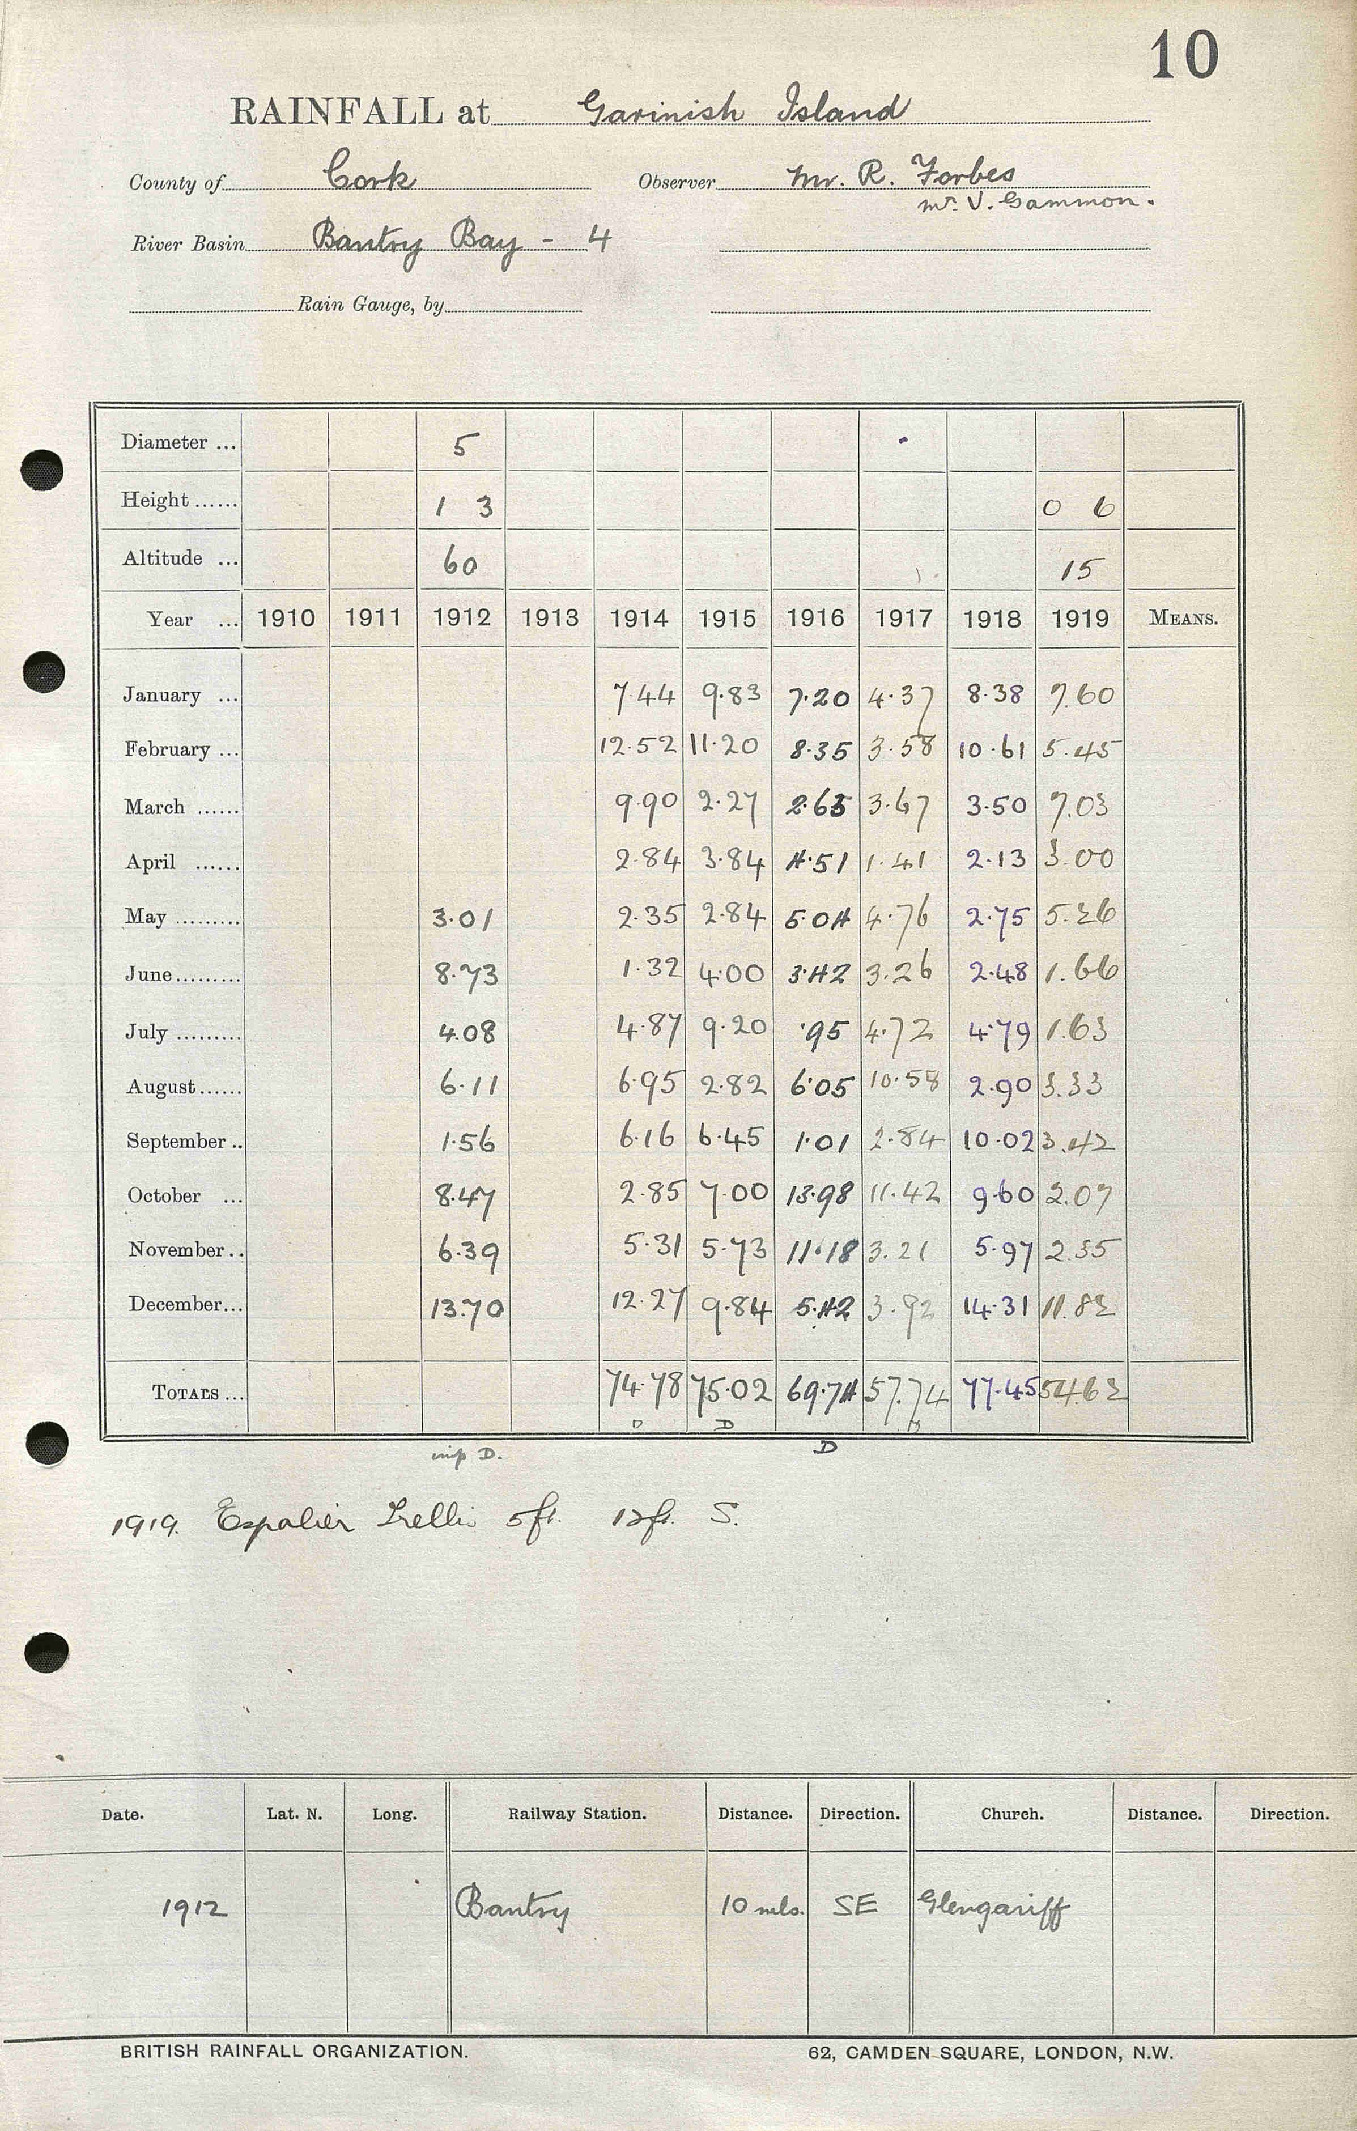 10
RAINFALL at Garinish Island
County of Cork Observer Mr. R. Forbes
Mr. V. Gammon.
River Basin Bantry Bay - 4
Rain Gauge, by
Diameter ... 5
Height ...... 1 3 0 6
Altitude ... 60 15
Year ... 1910 1911 1912 1913 1914 1915 1916 1917 1918 1919 MEANS.
January ... 7.44 9.83 7.20 4.37 8.38 7.60
February ... 12.52 11.20 8.35 3.58 10.61 5.45
March ...... 9.90 2.27 2.63 3.67 3.50 7.03
April ...... 2.84 3.84 4.51 1.41 2.13 3.00
May ......... 3.01 2.35 2.84 5.04 4.76 2.75 5.26
June ......... 8.73 1.32 4.00 3.42 3.26 2.48 1.66
July ......... 4.08 4.87 9.20 .95 4.72 4.79 1.63
August ...... 6.11 6.95 2.82 6.05 10.58 2.90 3.33
September .. 1.56 6.16 6.45 1.01 2.84 10.02 3.42
October ... 8.47 2.85 7.00 13.98 11.42 9.60 2.07
November .. 6.39 5.31 5.73 11.18 3.21 5.97 2.35
December... 13.70 12.27 9.84 5.42 3.92 14.31 11.83
TOTALS ... 74.78 75.02 69.74 57.74 77.45 54.63
D D
D
1919. Espalier Trellis 5ft. 12ft. S.
Date. Lat. N. Long. Railway Station. Distance. Direction. Church. Distance. Direction.
1912 Bantry 10 mls. SE Glengariff
BRITISH RAINFALL ORGANIZATION. 62, CAMDEN SQUARE, LONDON, N.W.